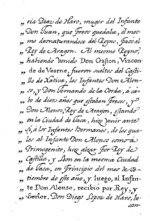 ria Diaz de Haro, muger del Infante
Don Iuan, que preso quedaba, al mes-
mo dematurandoca del Reyno, fuesse al
Rey de Aragon. Al mesmo Reyno,
habiendo venido Don Gaston, Viscon-
de de Bearne, fueron sueltos del Casti-
llo de Xativa, los Infantes Don Alon-
so, y Don Fernando de la Cerda, a ca-
bo de diez años que estaban presos, y
Don Alonso, Rey de Aragon, estando
en la Ciudad de Iaca, hizo venir ante
si, a los Infantes Hermanos, de los qua-
les al Infante Don Alonso como a
Primogenito, hizo alzar por Rey de
Castilla, y Leon en la mesma Ciudad
de Iaca, en principio del mes de Sep-
tiembre de este año, y luego, el Infan-
te Don Alonso, recibió por Rey, y
Señor, Don Diego Lopez de Haro, le